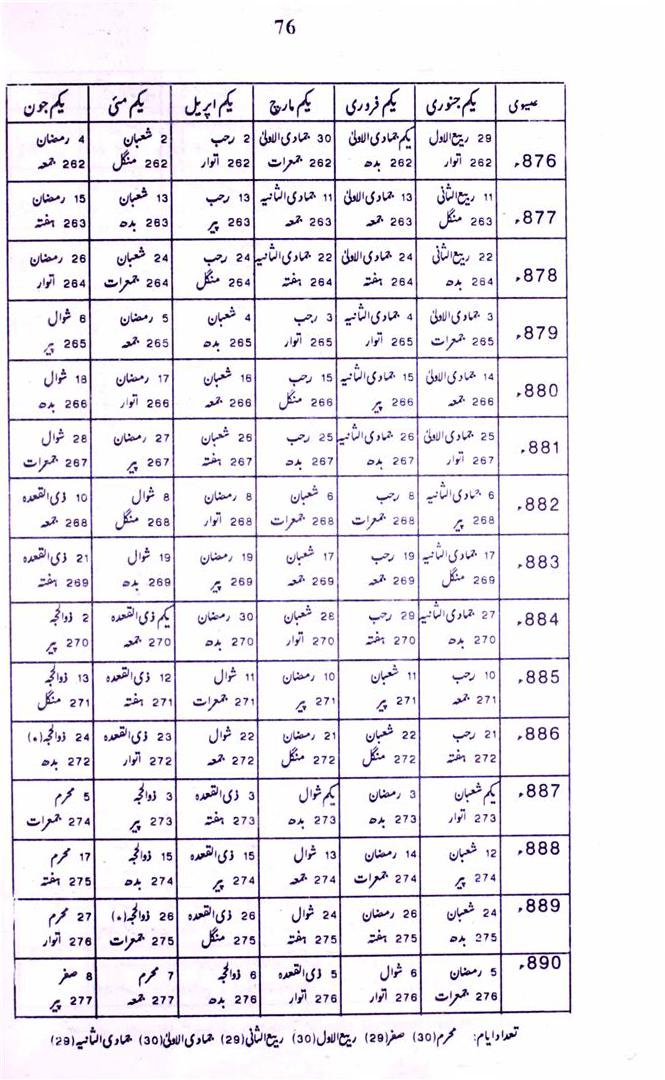 76
عیسوی یکم جنوری یکم فروری یکم مارچ یکم اپریل یکم مئی یکم جون
876ء 29 ربیع الاول یکم جمادی الاولیٰ 30 جمادی الاولیٰ 2 رجب 2 شعبان 4 رمضان
262 اتوار 262 بدھ 262 جمعرات 262 اتوار 262 منگل 262 جمعہ
877ء 11 ربیع الثانی 13 جمادی الاولیٰ 11 جمادی الثانیہ 13 رجب 13 شعبان 15 رمضان
263 منگل 263 جمعہ 263 جمعہ 263 پیر 263 بدھ 263 ہفتہ
878ء 22 ربیع الثانی 24 جمادی الاولیٰ 22 جمادی الثانیہ 24 رجب 24 شعبان 26 رمضان
264 بدھ 264 ہفتہ 264 ہفتہ 264 منگل 264 جمعرات 264 اتوار
879ء 3 جمادی الاولیٰ 4 جمادی الثانیہ 3 رجب 4 شعبان 5 رمضان 6 شوال
265 جمعرات 265 اتوار 265 اتوار 265 بدھ 265 جمعہ 265 پیر
880ء 14 جمادی الاولیٰ 15 جمادی الثانیہ 15 رجب 16 شعبان 17 رمضان 18 شوال
266 جمعہ 266 پیر 266 منگل 266 جمعہ 266 اتوار 266 بدھ
881ء 25 جمادی الاولیٰ 26 جمادی الثانیہ 25 رجب 26 شعبان 27 رمضان 28 شوال
267 اتوار 267 بدھ 267 بدھ 267 ہفتہ 267 پیر 267 جمعرات
882ء 6 جمادی الثانیہ 8 رجب 6 شعبان 8 رمضان 8 شوال 10 ذی القعدہ
268 پیر 268 جمعرات 268 جمعرات 268 اتوار 268 منگل 268 جمعہ
883ء 17 جمادی الثانیہ 19 رجب 17 شعبان 19 رمضان 19 شوال 21 ذی القعدہ
269 منگل 269 جمعہ 269 جمعہ 269 پیر 269 بدھ 269 ہفتہ
884ء 27 جمادی الثانیہ 29 رجب 28 شعبان 30 رمضان یکم ذی القعدہ 2 ذوالحجہ
270 بدھ 270 ہفتہ 270 اتوار 270 بدھ 270 جمعہ 270 پیر
885ء 10 رجب 11 شعبان 10 رمضان 11 شوال 12 ذی القعدہ 13 ذوالحجہ
271 جمعہ 271 پیر 271 پیر 271 جمعرات 271 ہفتہ 271 منگل
886ء 21 رجب 22 شعبان 21 رمضان 22 شوال 23 ذی القعدہ 24 ذوالحجہ(*)
272 ہفتہ 272 منگل 272 منگل 272 جمعہ 272 اتوار 272 بدھ
887ء یکم شعبان 3 رمضان یکم شوال 3 ذی القعدہ 3 ذوالحجہ 5 محرم
273 اتوار 273 بدھ 273 بدھ 273 ہفتہ 273 پیر 274 جمعرات
888ء 12 شعبان 14 رمضان 13 شوال 15 ذی القعدہ 15 ذوالحجہ 17 محرم
274 پیر 274 جمعرات 274 جمعہ 274 پیر 274 بدھ 275 ہفتہ
889ء 24 شعبان 26 رمضان 24 شوال 26 ذی القعدہ 26 ذوالحجہ(*) 27 محرم
275 بدھ 275 ہفتہ 275 ہفتہ 275 منگل 275 جمعرات 276 اتوار
890ء 5 رمضان 6 شوال 5 ذی القعدہ 6 ذوالحجہ 7 محرم 8 صفر
276 جمعرات 276 اتوار 276 اتوار 276 بدھ 277 جمعہ 277 پیر
تعداد ایام: محرم(30) صفر(29) ربیع الاول(30) ربیع الثانی(29) جمادی الاولیٰ(30) جمادی الثانیہ(29)